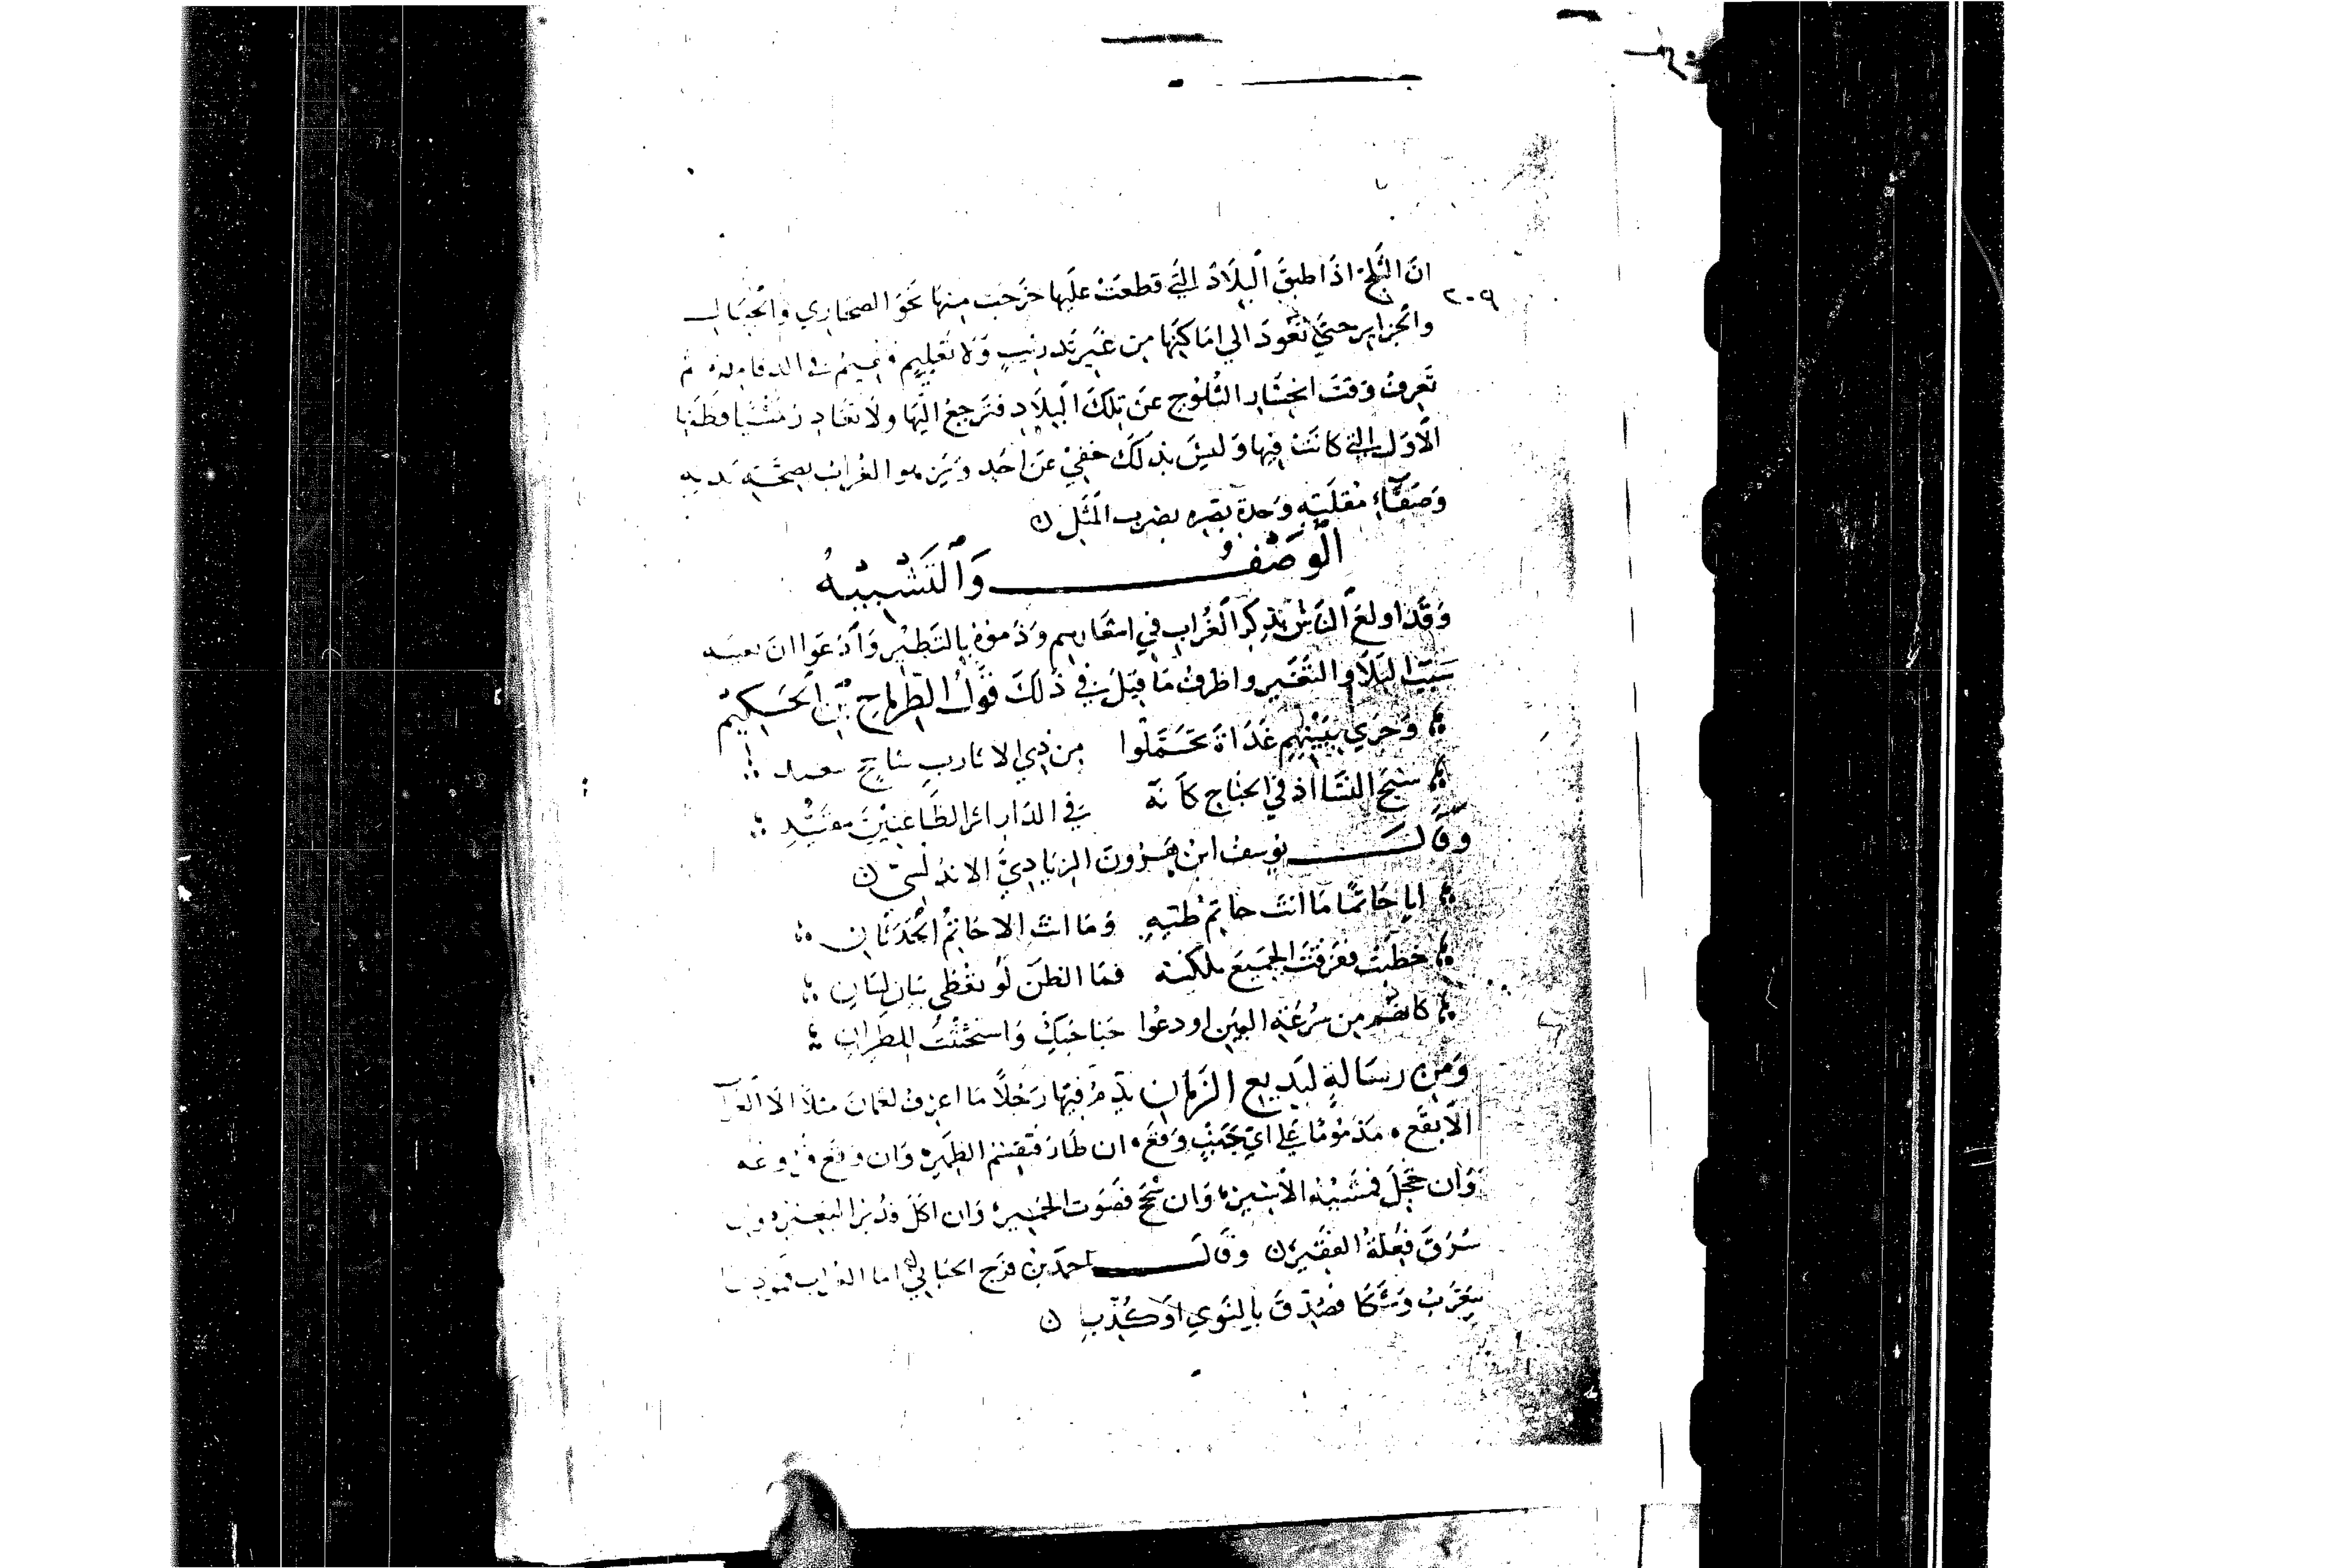 ٢٠٩
ان الثلج اذا طبق البلاد التي قطعت عليها خرجت منها نحو الصحاري والجبال
والجزاير حتي تعود الي اماكنها من غير تدريب ولا تعليم في الدفا ثم
تعرف وقت انحسار الثلوج عن تلك البلاد فترجع اليها ولا
الاول التي كانت فيها وليس بذلك خفي عن احد الغراب بصحة بدنه
وصفاء مقلته وحدة بصره يضرب المثل ن
الوصف والتشبيه
وقد اولع الناس بذكر الغراب في اشعارهم وذموه بالتطير وادعوا ان
سبب البلا والتغير واظرف ما قيل في ذلك قول الطرماح بن الحكيم
وجري ببينهم غداة تحملوا من ذي الاثارب شاحج
شنج النسا اد في الجناح كانه في الدار اثر الظاعنين مقيد
وقال يوسف ابن هرون الزيادي الاندلسي ن
ايا حاتما ما انت حاتم طيه وما انت الا حاتم الحدثان
خطبت ففرقت الجميع بلكنه فما الظن لو تغظي ببان لسان
كانهم من سرعة البين اودعوا جناحيك واستحثثت للطيران
ومن رسالة لبديع الزمان يذم فيها رجلا ما اعرف لفمان مثلا الا الغراب
الابقع مذموما علي اي جنب وقع ان طار فتقسم الظميره وان وقع
وان حجل فمشية الاسيره وان شحج فصوت الحميره وان اكل فدبر البعيره وان
سرق فبلغة الفقير ن وقال احمد بن فرج الجياني اما الغراب
بتغرب وشكا فصدق بالنوي او كذب ن